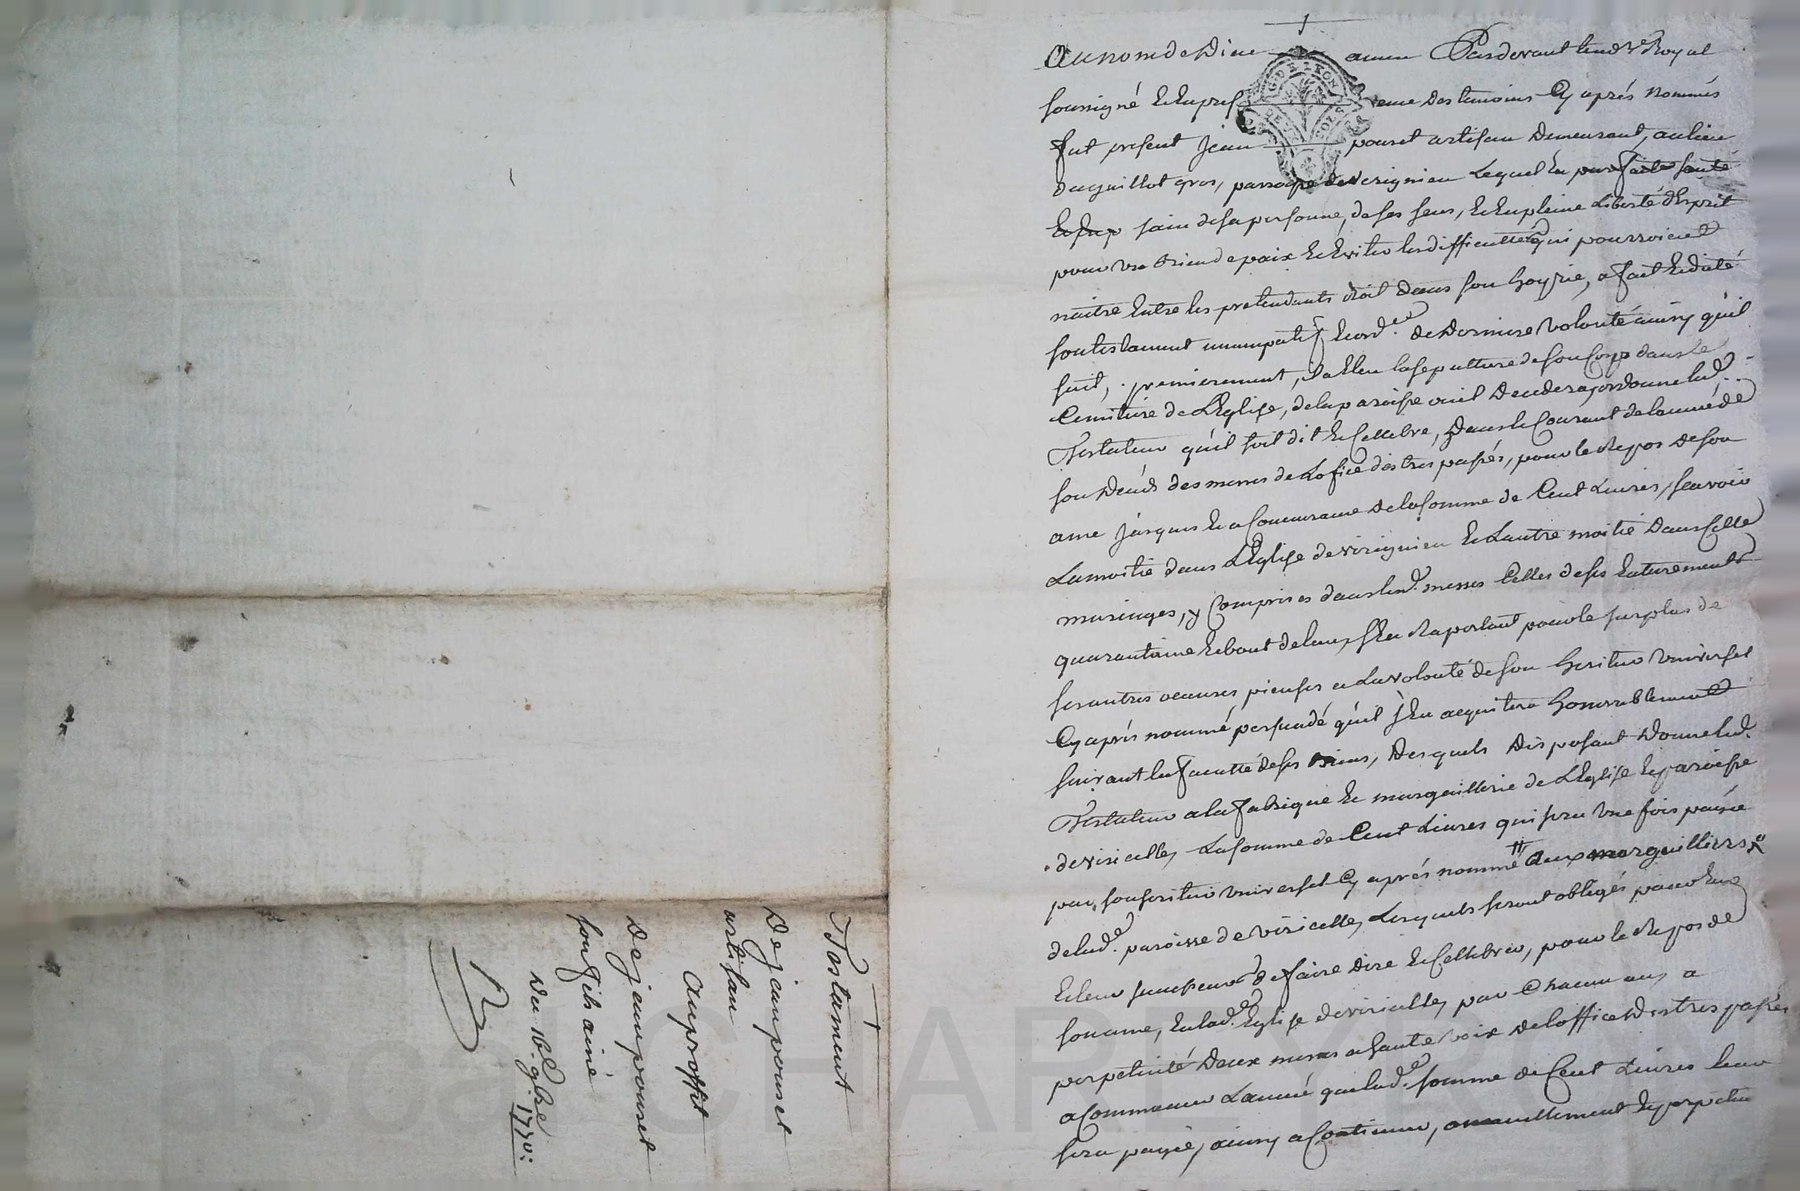 Au nom de Dieu amen Pardevant le nore Royal
soussigné et en presence des temoins Cy après nommés
fut present Jean pouret artisan demeurant, au lieu
du guillot gros, paroisse de virignieu Lequel en parfaite santé
sain de sa personne, de ses sens, et en pleine Liberté d'Esprit
pour vre bien de paix et Eviter les difficultés qui pourroient
naitre Entre les pretendants droit dans son hoyrie, a fait et dicté
son testament nuncupatif et ord.ce de derniere volonté ainsy qu'il
suit, premierement, il a Eleu la sepulture de son Corps dans le
Cemitiere de L'Eglise, de la paroisse où il decedera, ordonne led.
Testateur qu'il soit dit et Cellebré, dans le Courant de l'année de
son décès des messes de L'ofice des tres passés, pour le Repos de son
ame jusques et a Concurrance de la somme de Cent Livres, scavoir
La moitié dans L'Eglise de virignieu et L'autre moitié dans Celle
maringes, y Comprises dans lesd. messes Celles de ses Enterrement
quarantaine et bout de l'an, s'En Raportant pour le surplus de
ses autres oeuvres pieuses a La volonté de son heritier Universel
Cy après nommé persuadé qu'il s'En acquitera honnorablement
suivant la faculté de ses Biens, Desquels Disposant Donne led.
Testateur a la fabrique et marguillerie de L'Eglise et paroisse
de viricelles, La somme de Cent Livres qui sera Une fois païée
par son heritier Universel Cy après nommé aux marguilliers
de lad. paroisse de viricelles, Lesquels seront obligés pour Eux
et leur successeurs de faire dire et Cellebrer, pour le Repos de
son ame, En lad. Eglise de viricelles, par Chacun an, a
perpetuité Deux messes a haute voix de l'office des tres passés
a Commencer L'année que lad. somme de Cent Livres leur
sera païée, ainsy a Continuer, annuellement et perpetu
Testament
De jean pouret
artisan
Au proffit
De jean pouret
son fils ainé
Du 16e 9bre
1770: